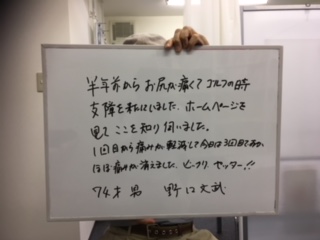 半年前からお尻が痛くてゴルフの時
支障を私にいました。ホームページを
見てここを知り伺いました。
1回目から痛みが軽減して今日は3回目であるが、
ほぼ痛みが消えました。ビックリ、ゼッター!!
74才 男 野口文武